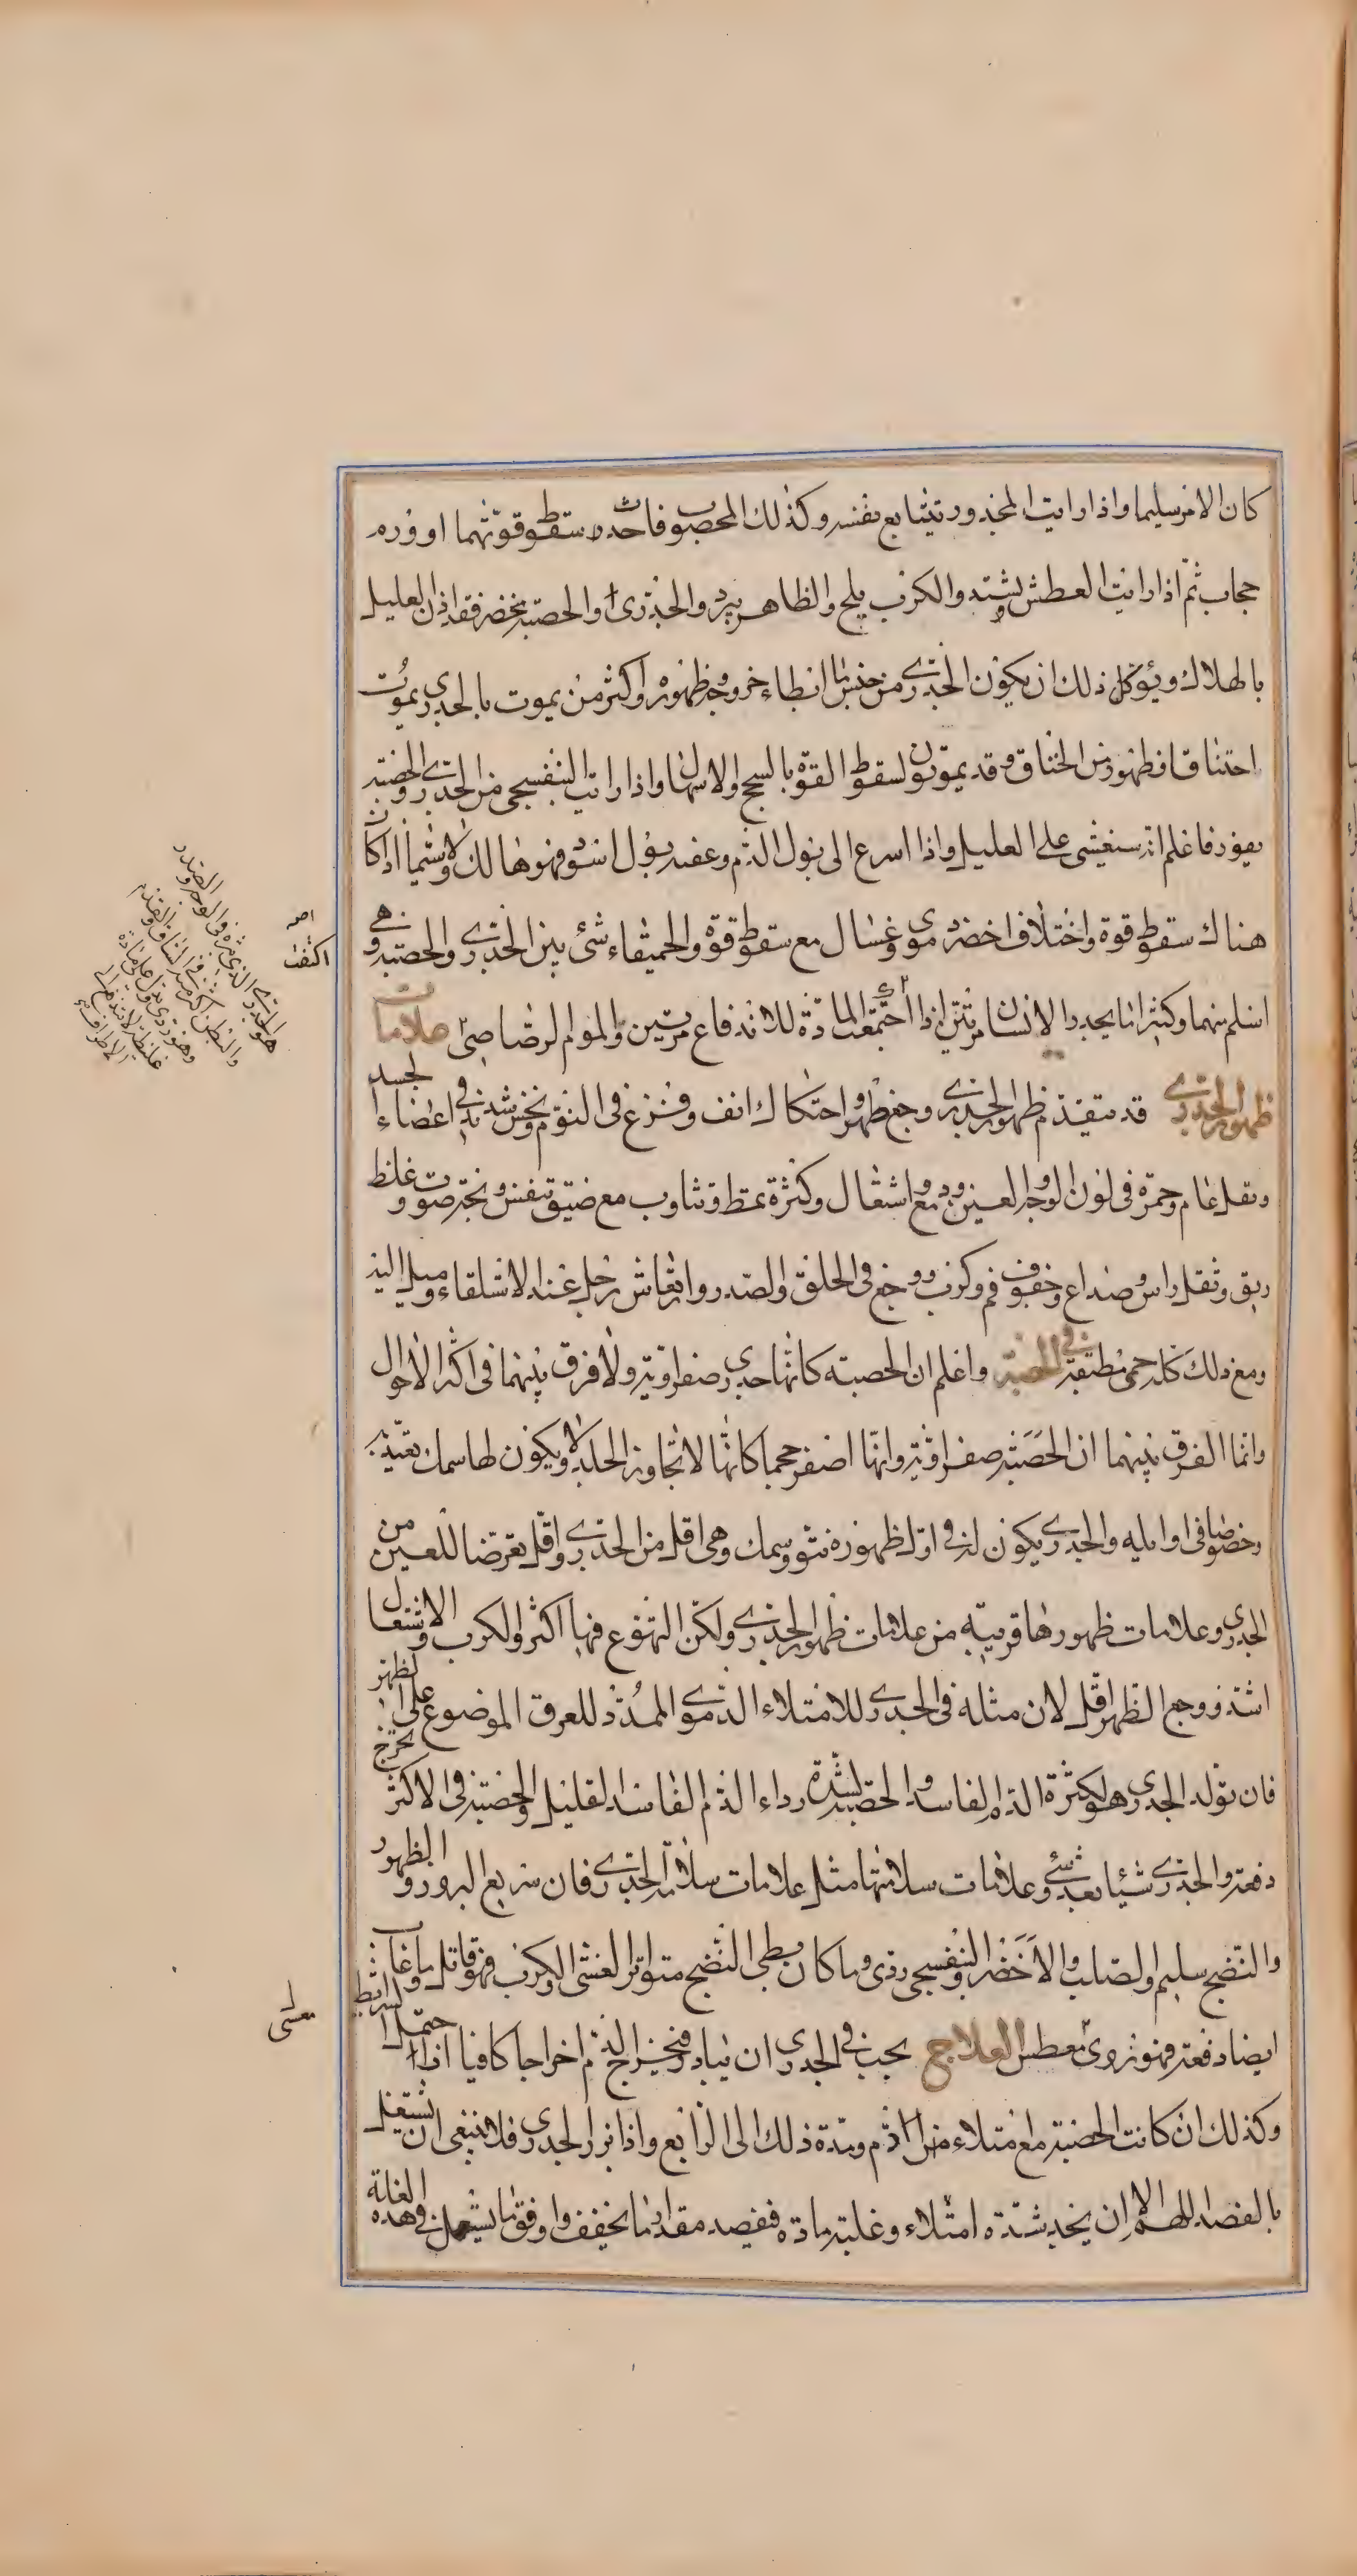 كان الامر سليما واذا رايت المجدور يتتابع نفسه وكذلك المحصوب فاحدس سقوط قوتهما او ورم
حجاب ثم اذا رايت العطش يشتد والكرب يلح والظاهر يبرد والجدري او الحصبة يخضر فقد اذن العليل
بالهلاك ويؤكد ذلك ان يكون الجدري من جنس ما ابطاء خروجه وظهوره واكثر من يموت بالجدري يموت
اختناقا وظهور من الخناق وقد يموتون لسقوط القوة بالسحج والاسهال واذا رايت البنفسجي من الجدري والحصبة
يغور فاعلم انه سيغشى على العليل واذا اسرع الى بول الدم وعقبه بول اسود فهو هالك لا سيما اذا كان
هناك سقوط قوة واختلاف اخضر دموي وغسال مع سقوط قوة والحميقاء شئ بين الجدري والحصبة وهي
اسلم منهما وكثيرا ما يجدر الانسان مرتين اذا اجتمعت المادة للاندفاع مرتين والموم الرصاصي علامات
ظهور الجدري قد يتقدم ظهور الجدري وجع ظهر واحتكاك انف وفزع في النوم ونخس شديد في اعضاء الجسد
وثقل عام وحمرة في لون الوجه والعين ودمع واشتعال وكثرة تمط وتثاوب مع ضيق تنفس وبحة صوت وغلظ
ريق وثقل راس وصداع وجفوف فم وكرب ووجع في الحلق والصدر وارتعاش رجل عند الاستلقاء وميل اليه
ومع ذلك كله حمى مطبقة في الحصبة واعلم ان الحصبة كانها جدري صفراوية ولا فرق بينهما في اكثر الاحوال
وانما الفرق بينهما ان الحصبة صفراوية وانها اصغر حجما كانها لا تجاوز الجلد ولا يكون لها سمك يعتد به
وخصوصا في اوايله والجدري يكون له في اول ظهوره نتو وسمك وهي اقل من الجدري واقل تعرضا للعين من
الجدري وعلامات ظهورها قريبة من علامات ظهور الجدري ولكن التهوع فيها اكثر والكرب والاشتعال
اشد ووجع الظهر اقل لان مثله في الجدري للامتلاء الدموي الممدد للعرق الموضوع على الظهر
فان تولد الجدري هو لكثرة الدم الفاسد والحصبة لشدة رداءة الدم الفاسد القليل والحصبة في الاكثر تخرج
دفعة والجدري شيئا بعد شئ وعلامات سلامتها مثل علامات سلامة الجدري فان سريع البروز والظهور
والنضج سليم والصلب والاخضر والبنفسجي ردي وما كان بطي النضج متواتر الغشي والكرب فهو قاتل وما غاب
ايضا دفعة فهو ردي معطش العلاج يجب في الجدري ان يبادر فيخرج الدم اخراجا كافيا اذا احتمل الشرائط
وكذلك ان كانت الحصبة مع امتلاء من الدم ومدة ذلك الى الرابع واذا برز الجدري فلا ينبغي ان يشتغل
بالفصد اللهم الا ان يجد شدة امتلاء وغلبة مادة فيفصد مقدار ما يخفف واوفق ما يستعمل في هذه العلة
اصر
اكثفت